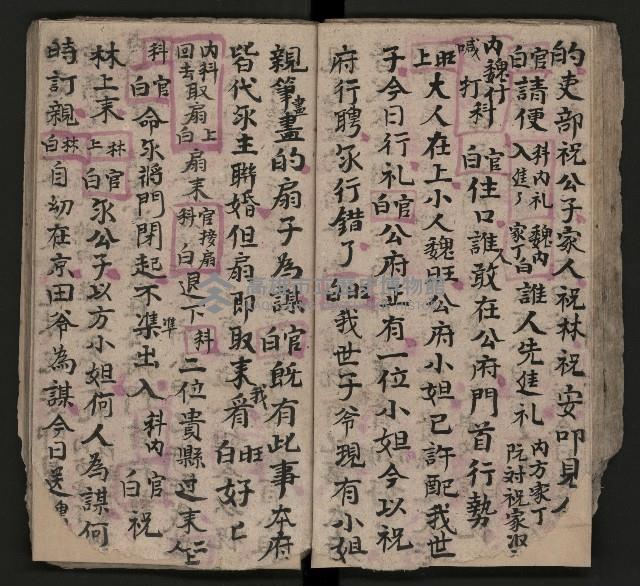 的吏部祝公子家人祝林祝安叩見人
官白請便 科內礼入進了 魏內家丁白誰人先進礼 內方家丁
內魏付科喊打 官白住口誰人敢在公府門首行勢
旺上大人在上小人魏旺公府小姐已許配我世
子今日行礼官白公府止有一位小姐今以祝
府行聘尔行錯了旺白我世子爷現有小姐
親筆畫的扇子為謀官白既有此事本府
皆代尔主聯婚但扇即取來我看旺白好
內科上回去取扇白扇來 官接扇科白退下科二位貴縣過來
官科白命尔將門閉起不準出入科內官白祝
林上來林上官白尔公子以方小姐何人為謀何
時訂親林白自幼在京田爷為謀今日送
高雄市立歷史博物館